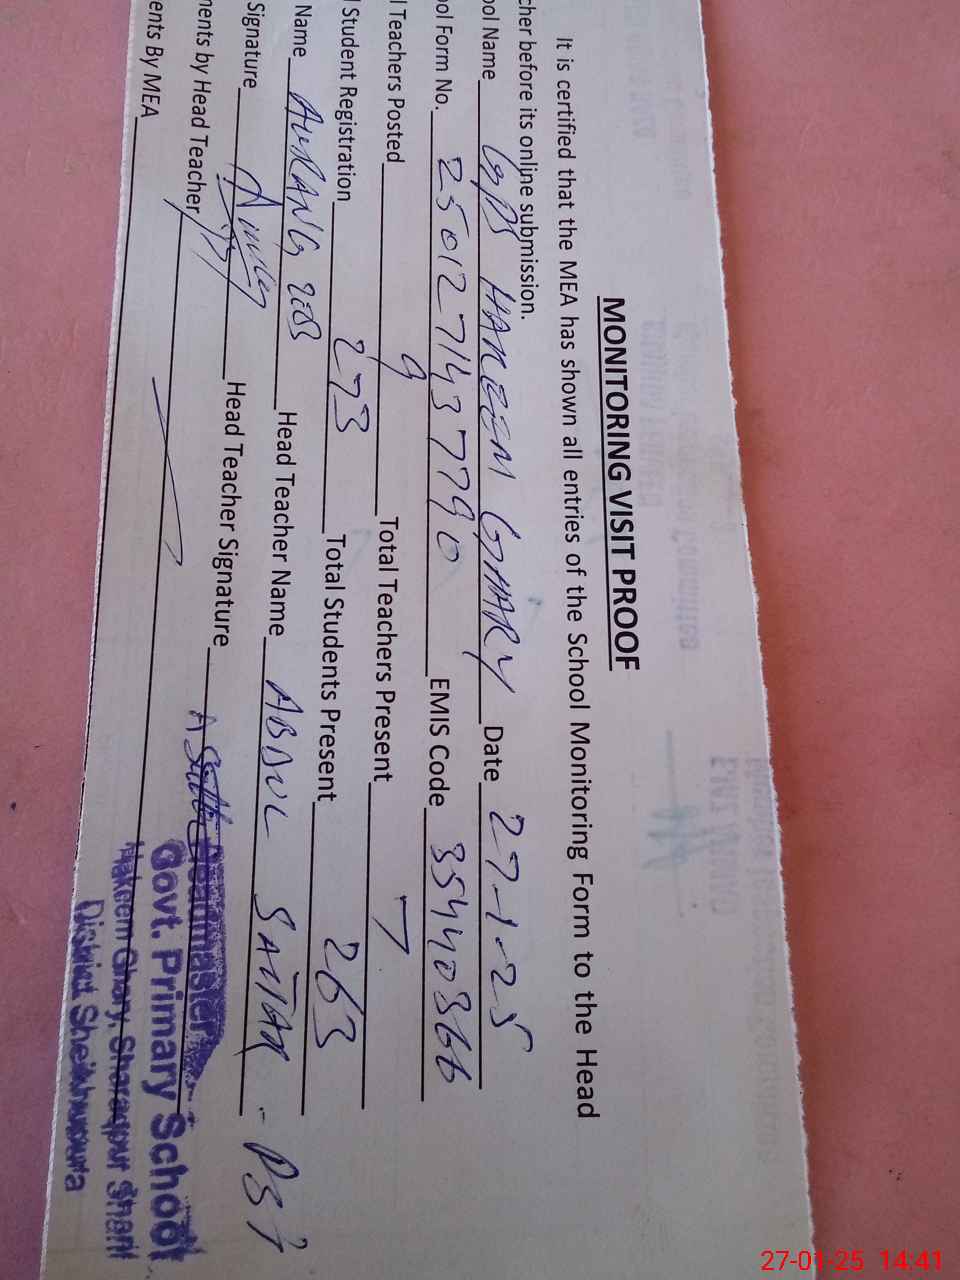 MONITORING VISIT PROOF
It is certified that the MEA has shown all entries of the School Monitoring Form to the Head
cher before its online submission.
ool Name GPS HAKEEM GHARY Date 27-1-25
ool Form No. 25012714377790 EMIS Code 35440366
l Teachers Posted 9 Total Teachers Present 7
l Student Registration 273 Total Students Present 263
Name AURANG ZEB Head Teacher Name ABDUL SATTAR - PST
Signature Head Teacher Signature
Headmaster
ments by Head Teacher
Govt. Primary School
ents By MEA
Hakeem Ghary, Sharaqpur Sharif
District Sheikhupura
27-01-25 14:41